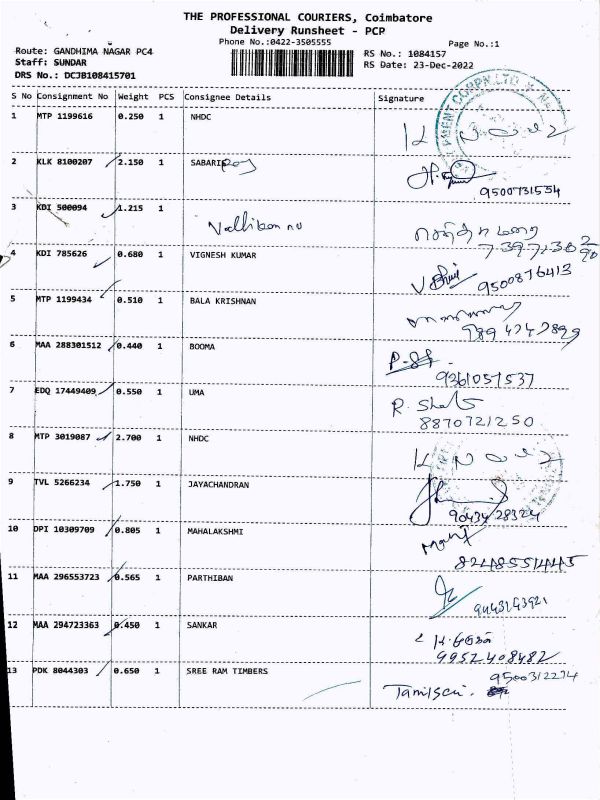 THE PROFESSIONAL COURIERS, Coimbatore
Delivery Runsheet - PCP
Phone No.:0422-3505555
Page No.:1
Route: GANDHIMA NAGAR PC4
RS No.: 1084157
Staff: SUNDAR
RS Date: 23-Dec-2022
DRS No.: DCJB108415701
S No Consignment No Weight PCS Consignee Details Signature
1 MTP 1199616 0.250 1 NHDC
2 KLK 8100207 2.150 1 SABARI
9500731554
3 KDI 500094 1.215 1
4 KDI 785626 0.680 1 VIGNESH KUMAR
9500876413
5 MTP 1199434 0.510 1 BALA KRISHNAN
6 MAA 288301512 0.440 1 BOOMA
9361051537
7 EDQ 17449409 0.550 1 UMA
8870721250
8 MTP 3019087 2.700 1 NHDC
9 TVL 5266234 1.750 1 JAYACHANDRAN
9043428324
10 DPI 10309709 0.805 1 MAHALAKSHMI
11 MAA 296553723 0.565 1 PARTHIBAN
12 MAA 294723363 0.450 1 SANKAR
9952408482
13 PDK 8044303 0.650 1 SREE RAM TIMBERS
9500312274